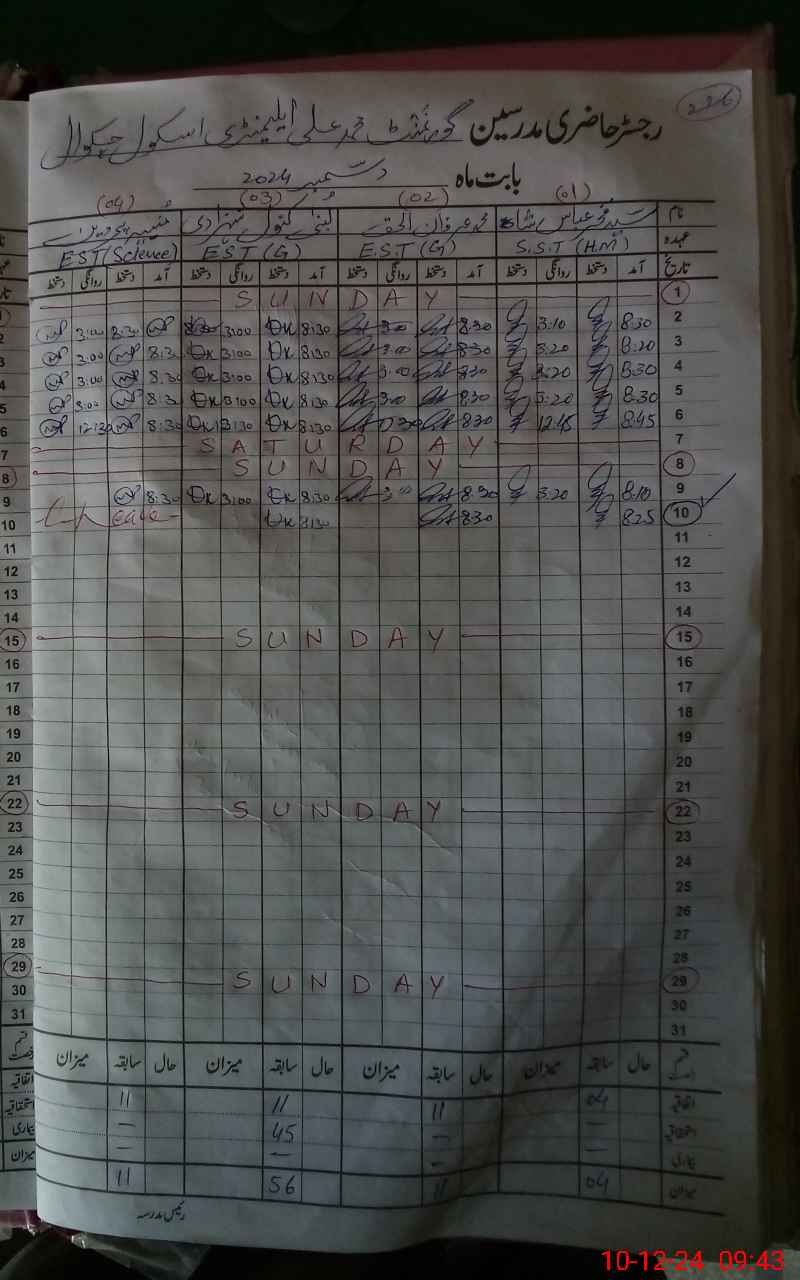 226
رجسٹر حاضری مدرسین گورنمنٹ محمد علی ایلیمنٹری اسکول چکوال
بابت ماہ دسمبر 2024
(01) (02) (03) (04)
نام سید فخر عباس شاہ محمد عرفان الحق لبنیٰ کنول شہزادی
عہدہ S.S.T (H.M) E.S.T (G) E.S.T (G) EST (Science)
تاریخ آمد دستخط روانگی دستخط آمد دستخط روانگی دستخط آمد دستخط روانگی دستخط آمد دستخط روانگی دستخط
1 SUNDAY
2 8:30 3:10 8:30 3:00 8:30 3:00 8:30 3:00
3 8:20 3:20 8:30 3:00 8:30 3:00 8:3 3:00
4 8:30 3:20 8:30 3:00 8:30 3:00 8:30 3:00
5 8:30 3:20 8:30 3:00 8:30 3:00 8:3 3:00
6 8:45 12:45 8:30 8:30 8:30 12:30
7 SATURDAY
8 SUNDAY
9 8:10 3:20 8:30 3:00 8:30 3:00 8:30
10 8:25 8:30 8:30 C/Leave
11
12
13
14
15 SUNDAY
16
17
18
19
20
21
22 SUNDAY
23
24
25
26
27
28
29 SUNDAY
30
31
قسم رخصت حال سابقہ میزان حال سابقہ میزان حال سابقہ میزان حال سابقہ میزان
اتفاقیہ 04 11 11 11
استحقاقیہ — — 45 —
بیماری — — — —
میزان 04 11 56 11
رئیس مدرسہ
10-12-24 09:43